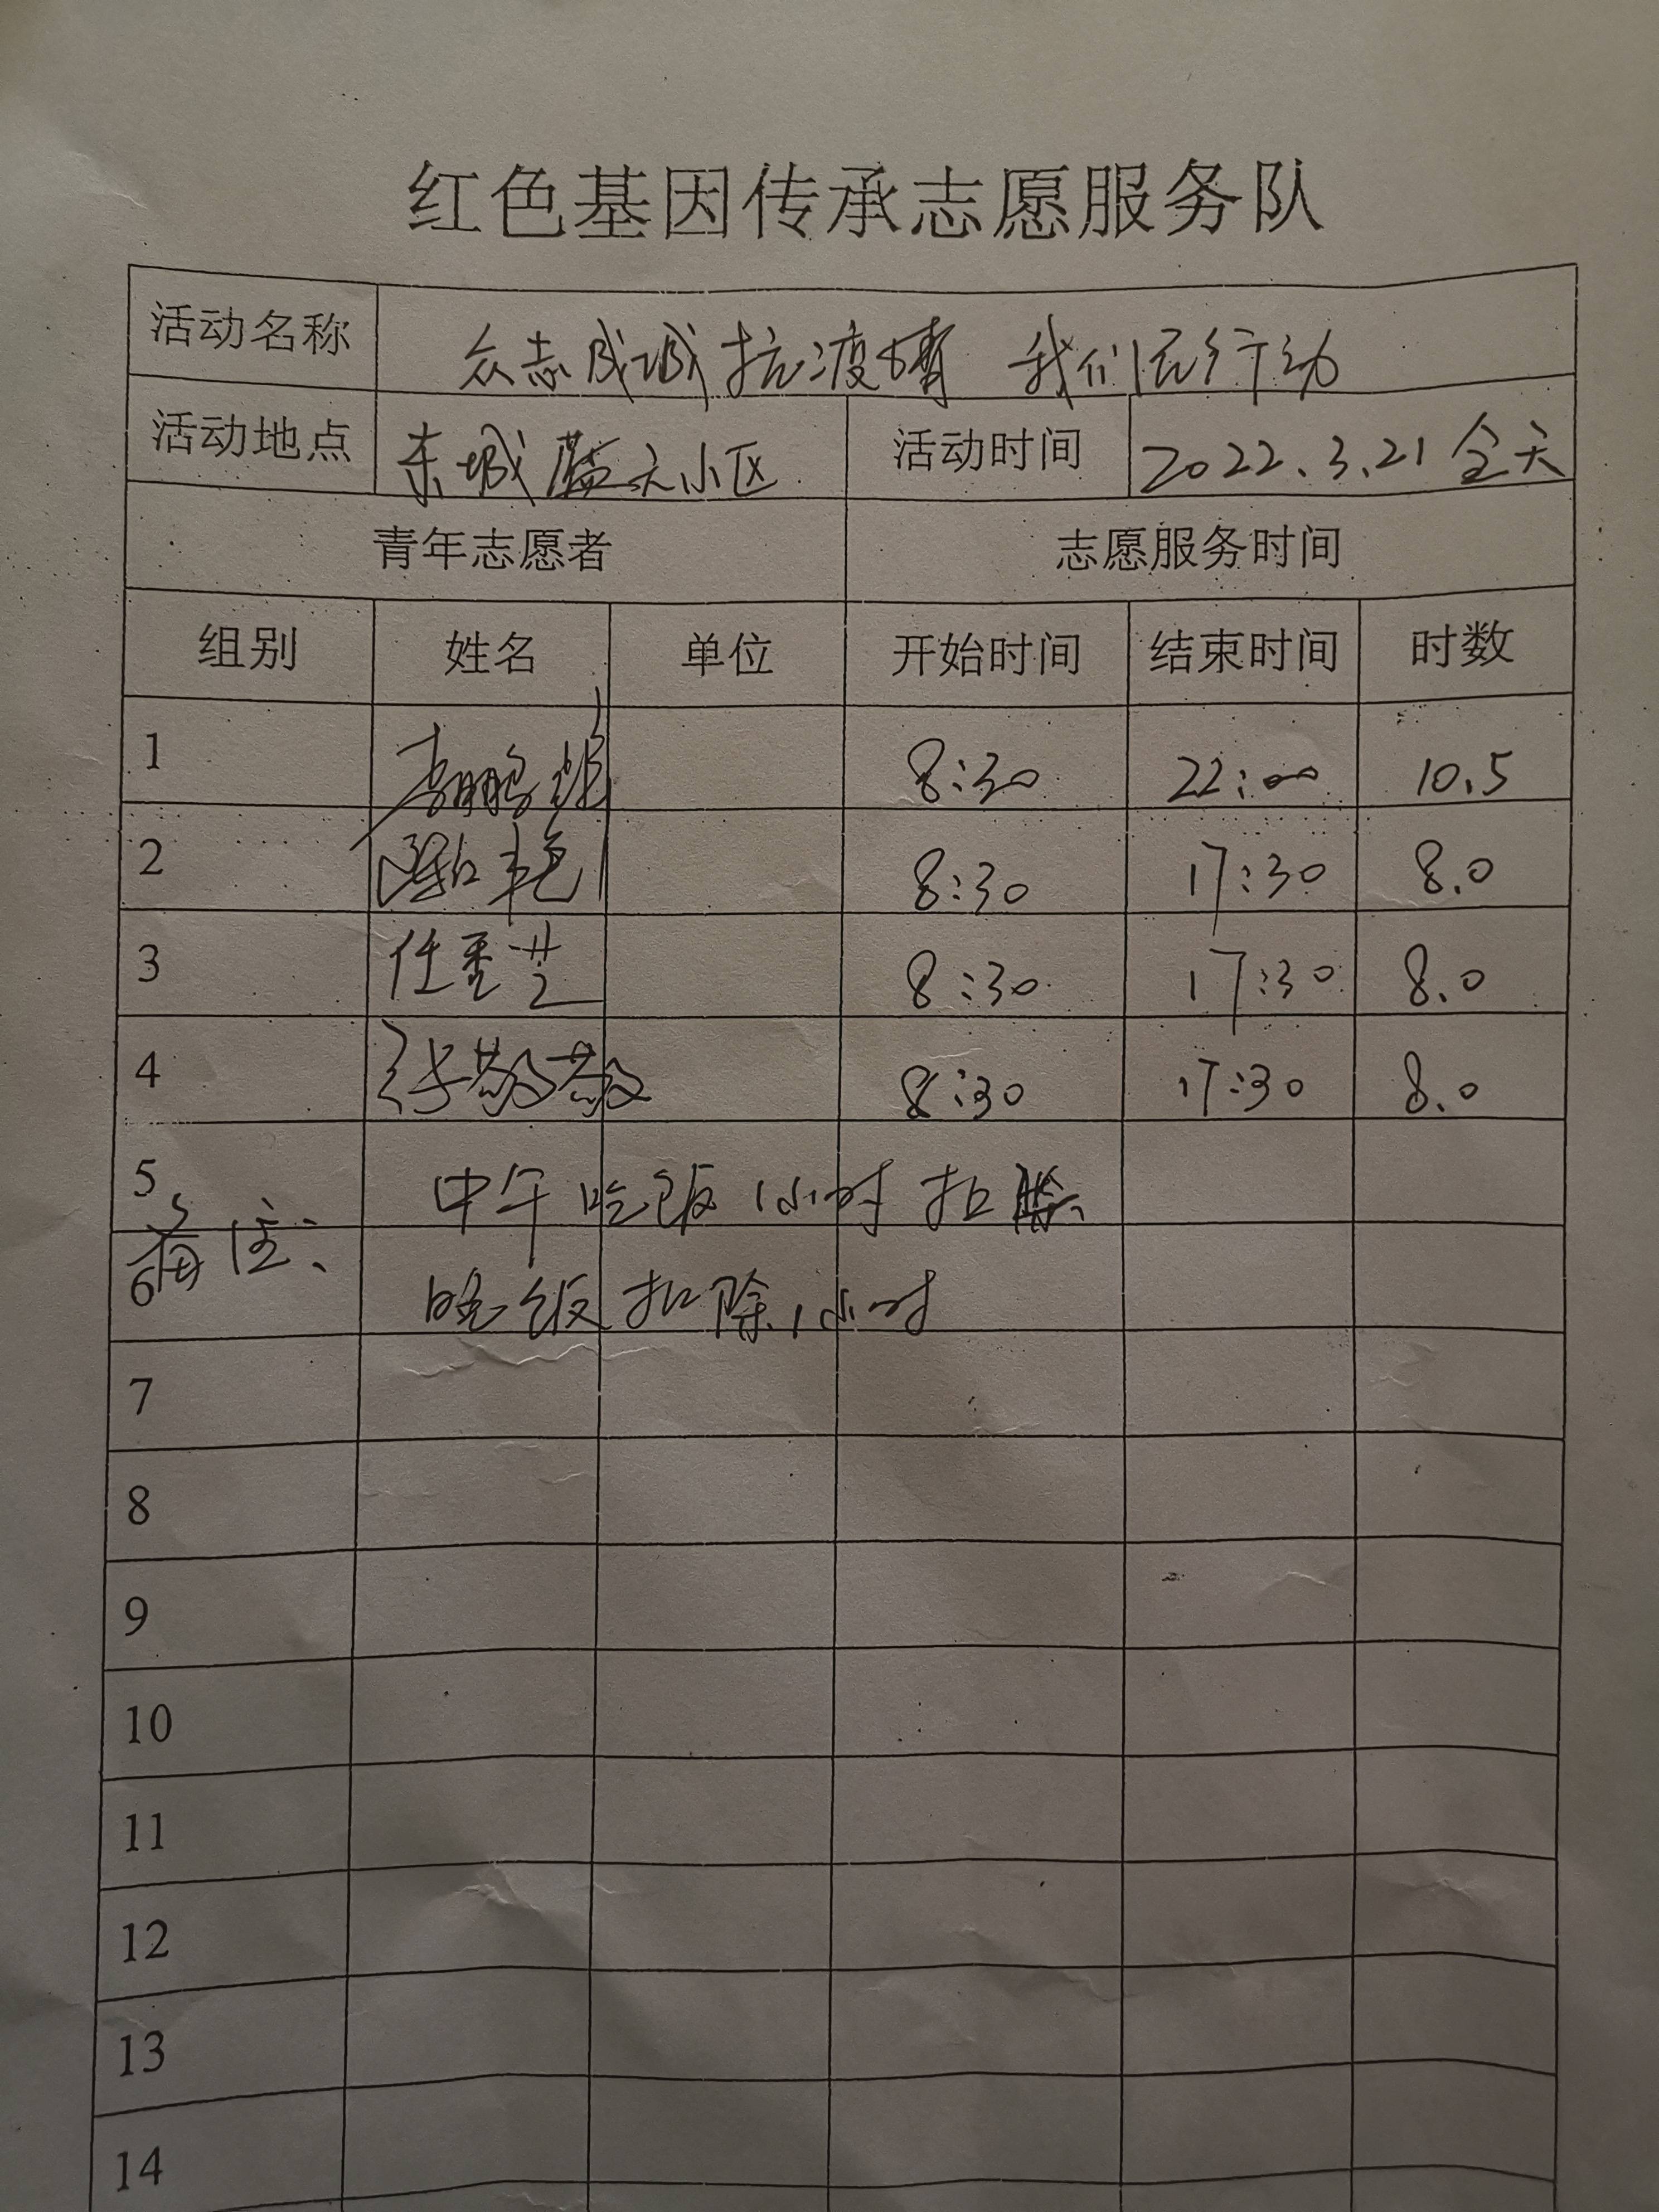 红色基因传承志愿服务队
活动名称 众志成城抗疫情 我们在行动
活动地点 东城蓝天小区 活动时间 2022.3.21 全天
青年志愿者 志愿服务时间
组别 姓名 单位 开始时间 结束时间 时数
1 李鹏 8:30 22:00 10.5
2 8:30 17:30 8.0
3 任重芝 8:30 17:30 8.0
4 张敬敬 8:30 17:30 8.0
5 中午吃饭1小时扣除、
备注:
6 晚饭扣除1小时
7
8
9
10
11
12
13
14